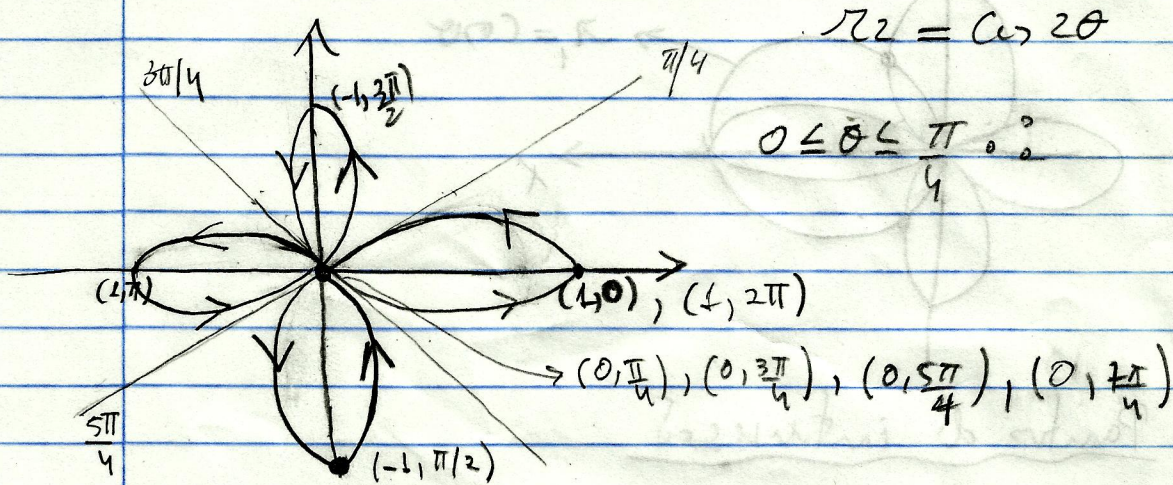 r2 = Cos 2θ
3π/4
π/4
(-1, 3π/2)
0 ≤ θ ≤ π/4 ∴
(1,π)
(1,0), (1, 2π)
(0,π/4), (0,3π/4), (0,5π/4), (0,7π/4)
5π/4
(-1, π/2)